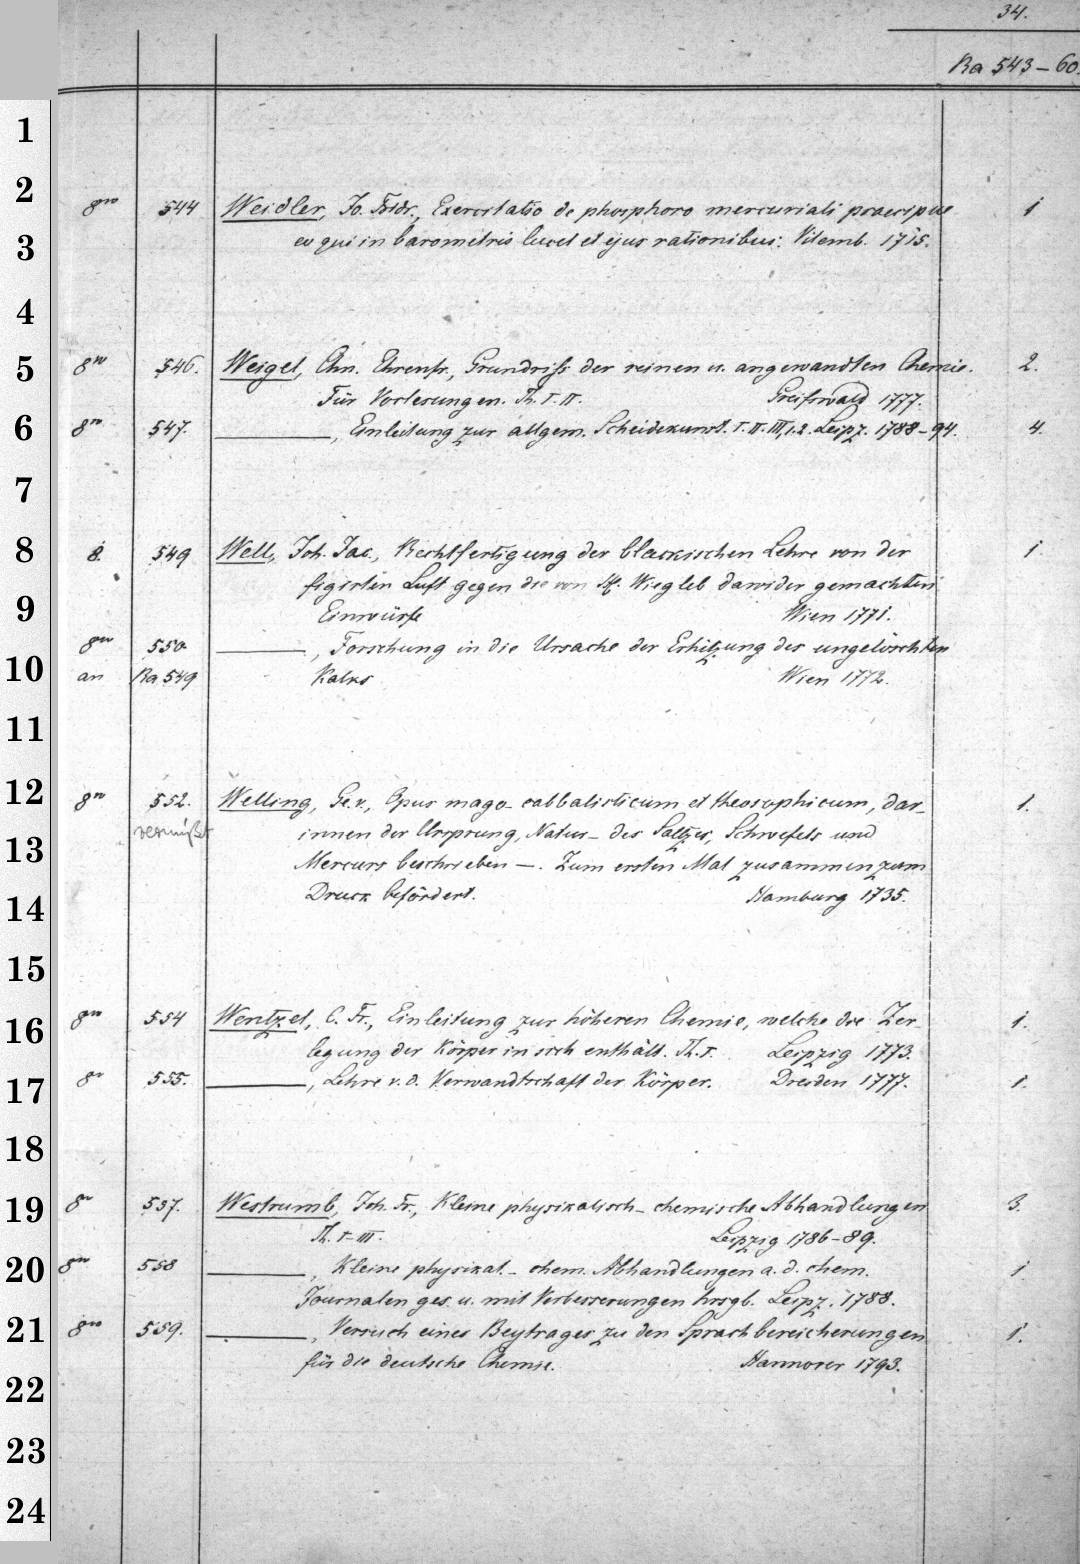 34.
Ra 543-60.
1
2
8vo 544 Weidler, Jo. Fridr., Exercitatio de phosphoro mercuriali praecipue 1
3
eo qui in barometris lucet et ejus rationibus. Vitemb. 1715.
4
5
8vo 546. Weigel, Chn. Ehrenfr., Grundriſs der reinen u. angewandten Chemie. 2.
Für Vorlesungen. Th. I. II. Greifswald 1777.
6
8vo 547. ———, Einleitung zur allgem. Scheidekunst. I. II. III, 1. 2. Leipz. 1788-94. 4.
7
8
8. 549 Well, Joh. Jac., Rechtfertigung der blackischen Lehre von der 1
figirten Luft gegen die von H. Wiegleb dawider gemachten
9
Einwürfe Wien 1771.
8vo 550 ———, Forschung in die Ursache der Erhitzung des ungelöschten
10
an Ra 549 Kalks Wien 1772.
11
12
8vo 552. Welling, Ge. v., Opus mago-cabbalisticum et theosophicum, dar- 1.
vermißt innen der Ursprung, Natur- des Saltzes, Schwefels und
13
Mercurs beschrieben —. Zum ersten Mal zusammen zum
14
Druck befördert. Hamburg 1735.
15
16
8vo 554 Wentzel, C. Fr., Einleitung zur höheren Chemie, welche die Zer- 1.
legung der Körper in sich enthält. Th. I. Leipzig 1773.
17
8o 555. ———, Lehre v. d. Verwandtschaft der Körper. Dresden 1777. 1.
18
19
8o 557. Westrumb, Joh. Fr., Kleine physikalisch-chemische Abhandlungen 3.
Th. I-III. Leipzig 1786-89.
20
8vo 558 ———, Kleine physikal.-chem. Abhandlungen a. d. chem. 1
Journalen ges. u. mit Verbesserungen hrsgb. Leipz. 1788.
21
8vo 559. ———, Versuch eines Beytrages zu den Sprachbereicherungen 1.
für die deutsche Chemie. Hannover 1793.
22
23
24